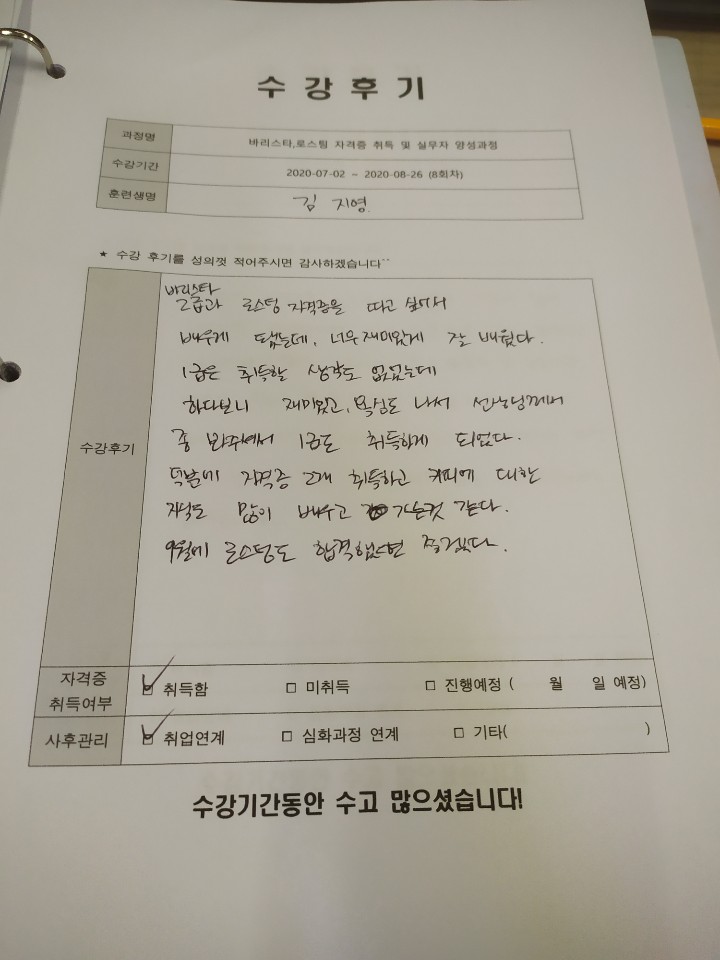 수 강 후 기
과정명 바리스타,로스팅 자격증 취득 및 실무자 양성과정
수강기간 2020-07-02 ~ 2020-08-26 (8회차)
훈련생명 김 지영
★ 수강 후기를 성의껏 적어주시면 감사하겠습니다^^
바리스타
2급과 로스팅 자격증을 따고 싶어서
배우게 됐는데, 너무 재미있게 잘 배웠다.
1급은 취득할 생각도 없었는데
하다보니 재미있고, 욕심도 나서 선생님께서
수강후기
종 봐주셔서 1급도 취득하게 되었다.
덕분에 자격증 2개 취득하고 커피에 대한
지식도 많이 배우고 가는것 같다.
9월에 로스팅도 합격했으면 좋겠다.
자격증 취득여부 ☑ 취득함 □ 미취득 □ 진행예정 ( 월 일 예정)
사후관리 ☑ 취업연계 □ 심화과정 연계 □ 기타( )
수강기간동안 수고 많으셨습니다!